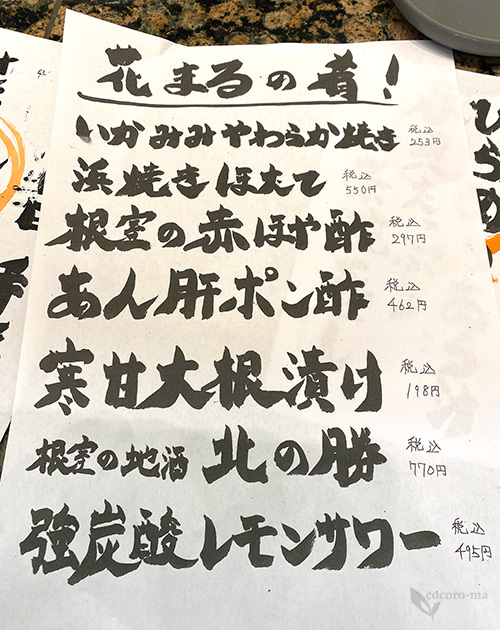 花まるの肴!
いかみみやわらか焼き 税込 253円
浜焼きほたて 税込 550円
根室の赤ほや酢 税込 297円
あん肝ポン酢 税込 462円
寒甘大根漬け 税込 198円
根室の地酒 北の勝 税込 770円
強炭酸レモンサワー 税込 495円
ひらめ
cocoro-ma